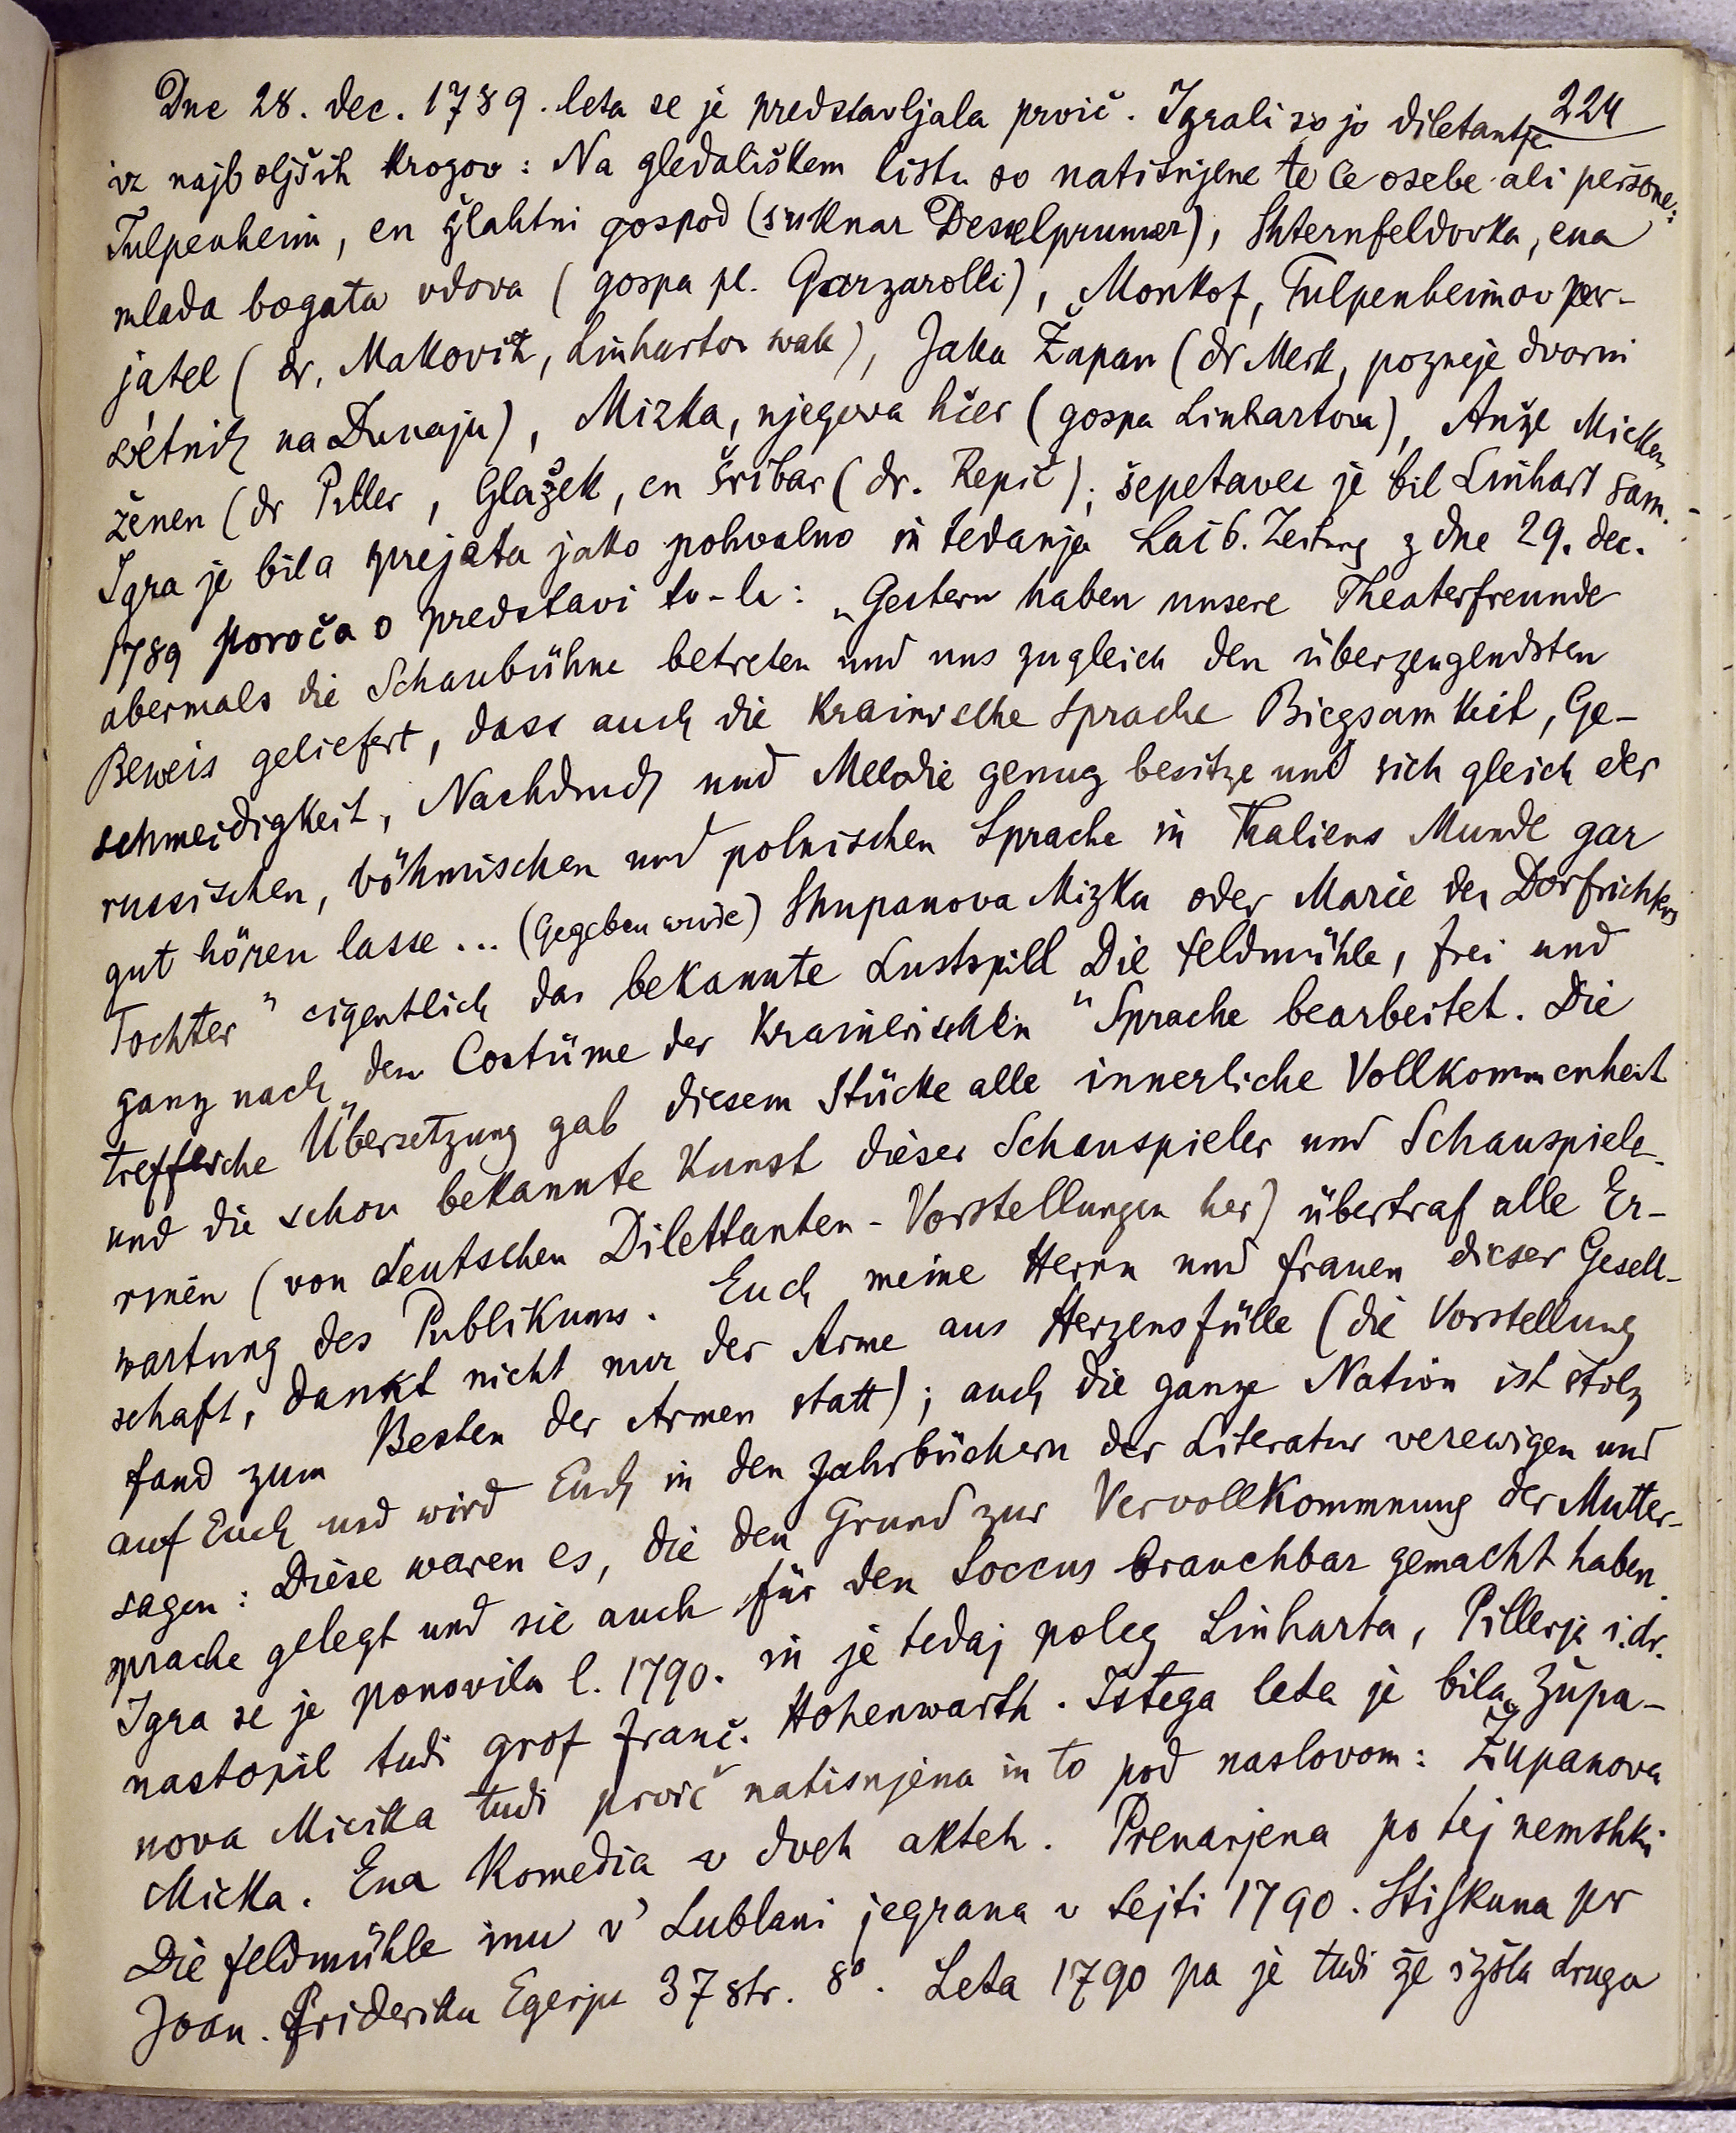 224
Dne 28. dec. 1789. leta se je predstavljala prvič. Igrali so jo diletantje
iz najboljših krogov: Na gledališkem listu so natisnjene te le osebe ali peršone:
Tulpenheim, en žlahtni gospod (suknar Desselprumer), Shternfeldovka, ena
mlada bogata vdova (gospa pl. Garzarolli), Monkof, Tulpenheimov per-
jatel (dr. Makovitz, Linhartov svak), Jaka Župan (dr Merk, pozneje dvorni
svétnik na Dunaju), Mizka, njegova hčer (gospa Linhartova), Anže Micken
ženen (dr Piller, Glažek, en šribar (dr. Repič); šepetavec je bil Linhart sam.
Igra je bila sprejeta jako pohvalno in tedanja Laib. Zeitung z dne 29. dec.
1789 poroča o predstavi to-le: „Gestern haben unsere Theaterfreunde
abermals die Schaubühne betreten und uns zugleich den überzeugendsten
Beweis geliefert, dass auch die Krainische Sprache Biegsamkeit, Ge-
schmeidigkeit, Nachdruck und Melodie genug besitze und sich gleich der
russischen, böhmischen und polnischen Sprache in Thaliens Munde gar
gut hören lasse ... (Gegeben wurde) Shupanova Mizka oder Marie des Dorfrichters
Tochter" eigentlich das bekannte Lustspiel Die Feldmühle, frei und
ganz nach „dem Costüme der Krainerischen" Sprache bearbeitet. Die
treffliche Übersetzung gab diesem Stücke alle innerliche Vollkommenheit
und die schon bekannte Kunst dieser Schauspieler und Schauspiele-
rinen (von deutschen Dilettanten-Vorstellungen her) übertraf alle Er-
wartung des Publikums. Euch meine Herrn und Frauen dieser Gesell-
schaft, dankt nicht nur der Arme aus Herzensfülle (die Vorstellung
fand zum Besten der Armen statt); auch die ganze Nation ist stolz
auf Euch und wird Euch in den Jahrbüchern der Literatur verewigen und
sagen: Diese waren es, die den Grund zur Vervollkommnung der Mutter-
sprache gelegt und sie auch für den Soccus brauchbar gemacht haben.
Igra se je ponovila l. 1790. in je tedaj poleg Linharta, Pillerja i.dr.
nastopil tudi grof Franč. Hohenwarth. Istega leta je bila „Župa-
nova Micika tudi prvič natisnjena in to pod naslovom: Županova
Micka. Ena Komedia v dveh akteh. Prenarjena po tej nemshki
Die Feldmühle inu v' Lublani jegrana v lejti 1790. Stiskana per
Joan. Frideriku Egerju 37 str. 8°. Leta 1790 pa je tudi že izšla druga